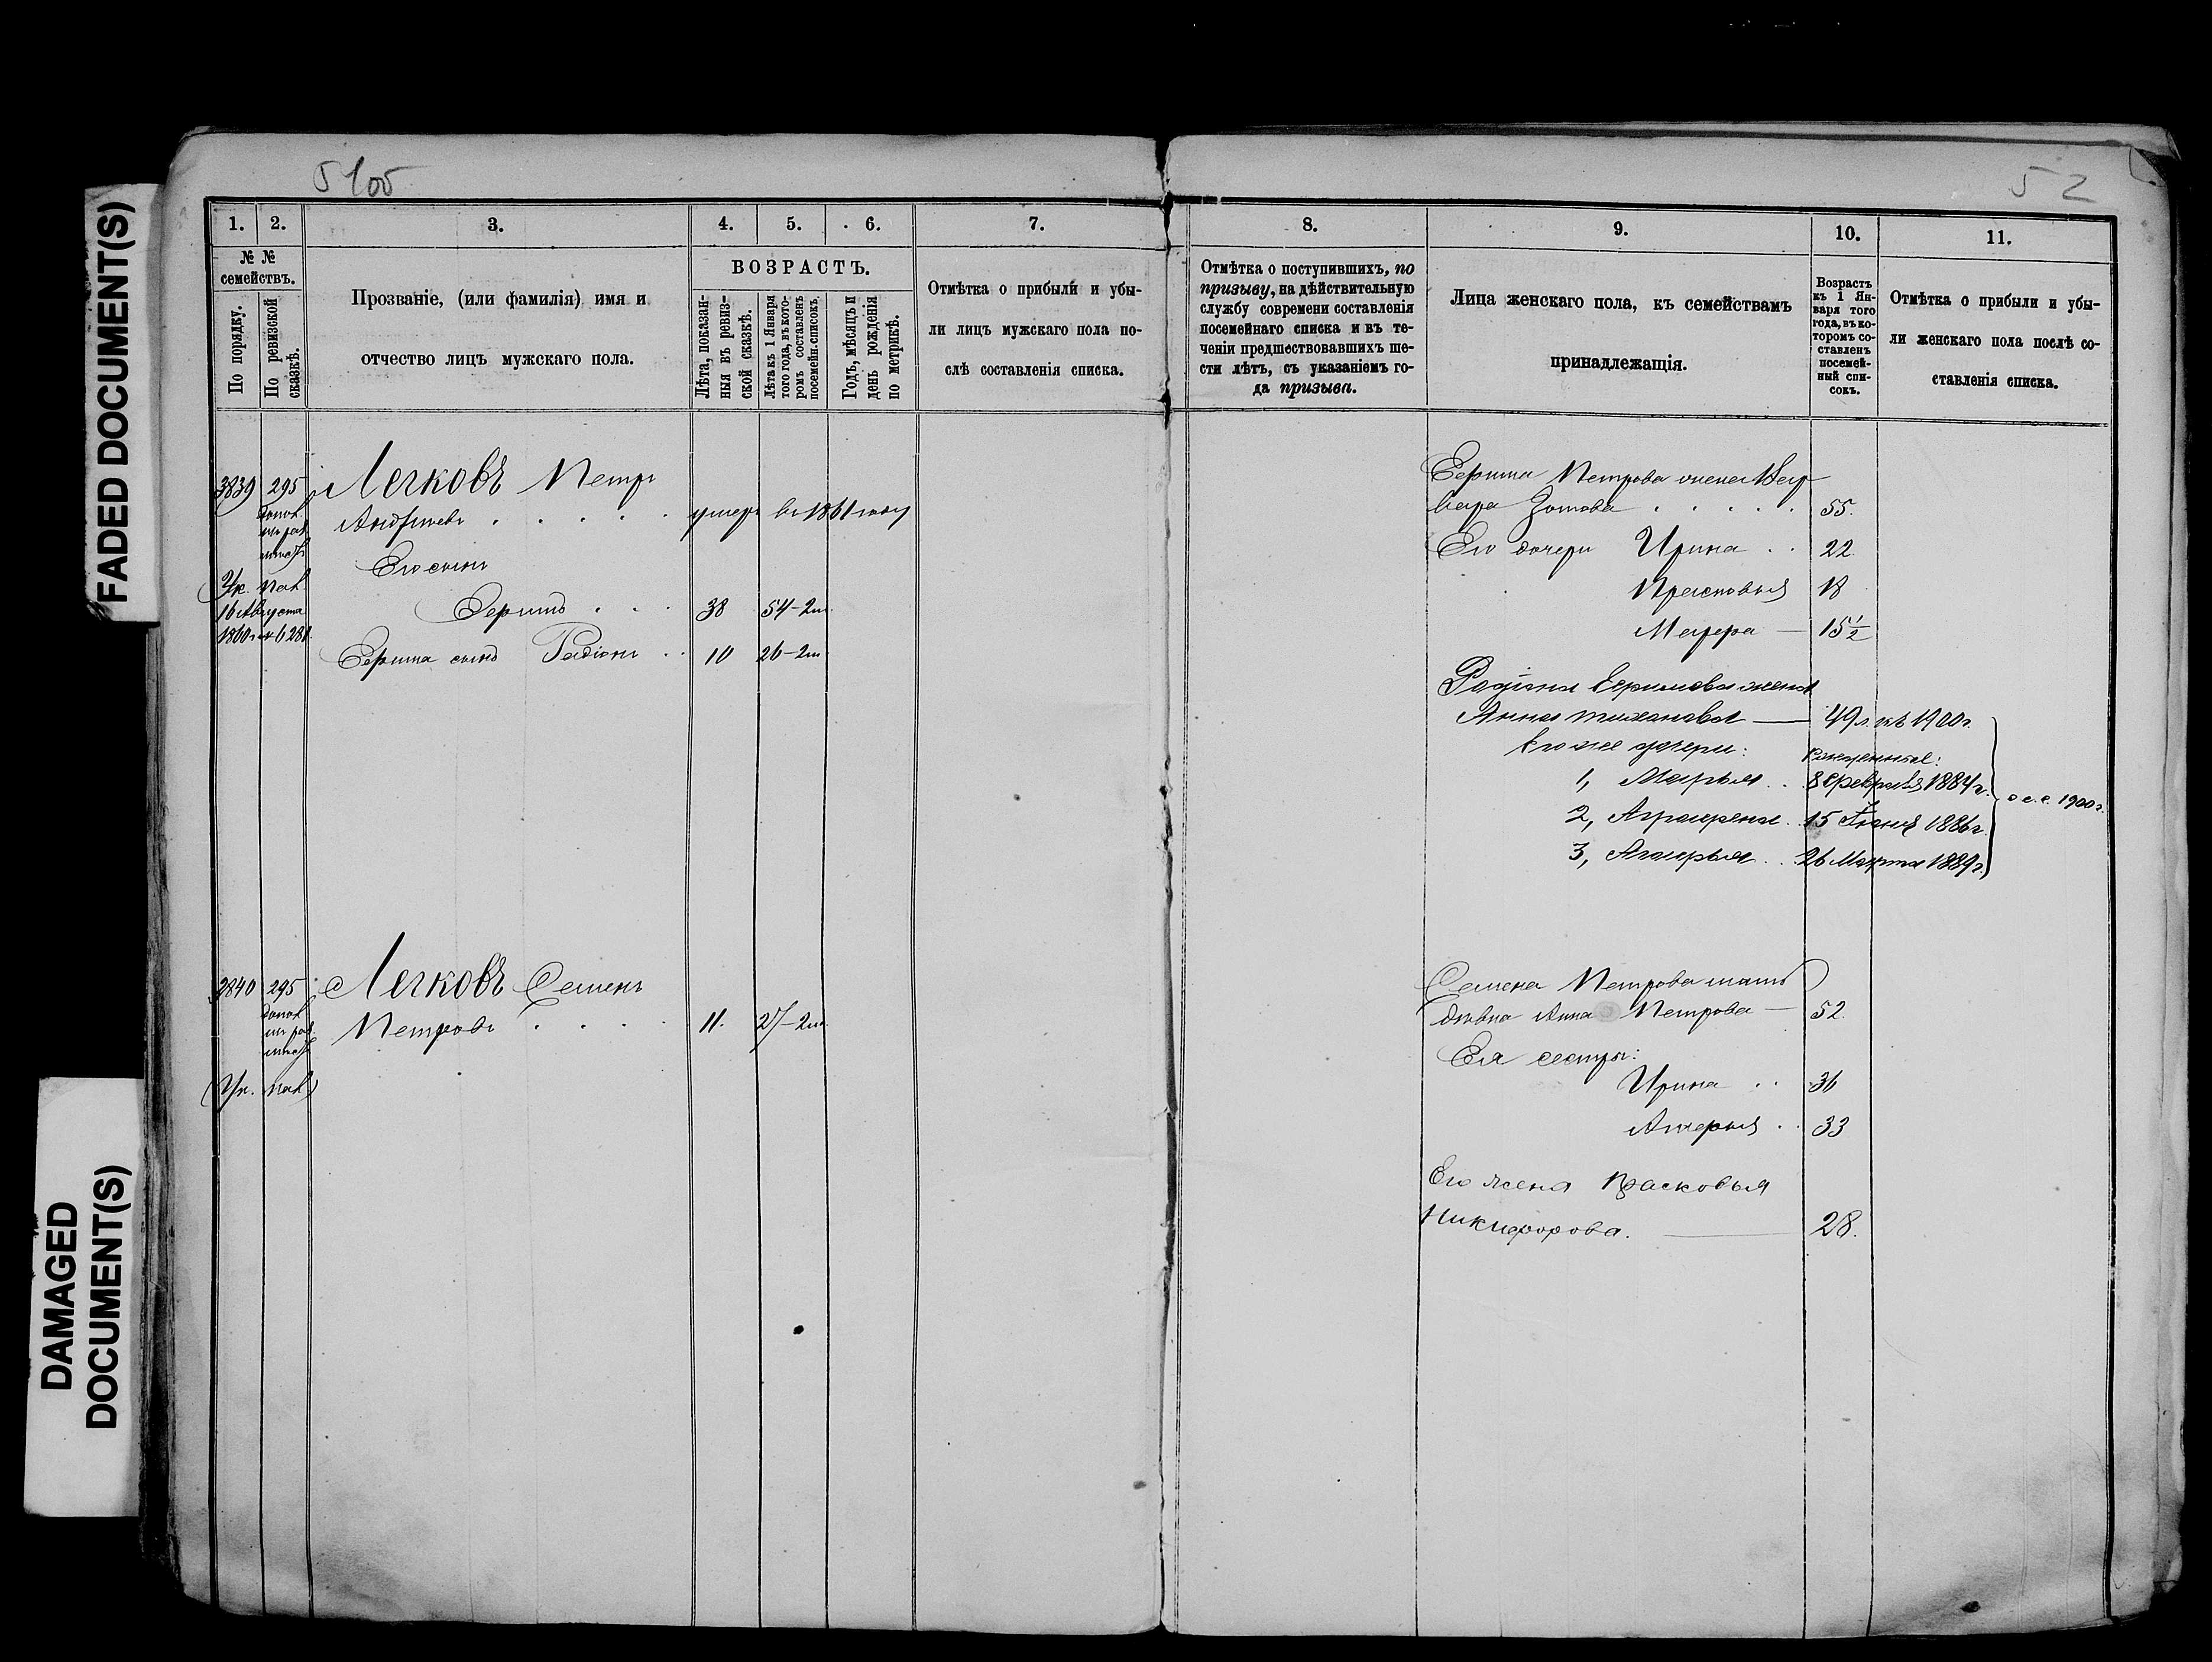 FADED DOCUMENT(S)
DAMAGED
DOCUMENT(S)
5100
52
1.
2.
3.
4.
5.
6.
7.
№ №
семействъ.
По порядку.
По ревизской
сказкѣ.
Прозваніе, (или фамилія) имя и
отчество лицъ мужскаго пола.
ВОЗРАСТЪ.
Лѣта, показан-
ныя въ ревиз-
ской сказкѣ.
Лѣта къ 1 Января
того года, въ кото-
ромъ составленъ
посемейн. списокъ.
Годъ, мѣсяцъ и
день рожденія
по метрикѣ.
Отмѣтка о прибыли и убы-
ли лицъ мужскаго пола по-
слѣ составленія списка.
3839 295 Легковъ Петръ
Андреевъ . . . . . умеръ въ 1861 году
Его сынъ
16 Августа
Ефимъ . . . 38 54-2м.
Ефима сынъ Радіонъ . . 10 26-2м.
3840 295 Легковъ Семенъ
Петровъ . . . . 11. 27-2м.
8.
9.
10.
11.
Отмѣтка о поступившихъ, по
призыву, на дѣйствительную
службу современи составленія
посемейнаго списка и въ те-
ченіи предшествовавшихъ ше-
сти лѣтъ, съ указаніемъ го-
да призыва.
Лица женскаго пола, къ семействамъ
принадлежащія.
Возрастъ
къ 1 Ян-
варя того
года, въ ко-
торомъ со-
ставленъ
посемей-
ный спи-
сокъ.
Отмѣтка о прибыли и убы-
ли женскаго пола послѣ со-
ставленія списка.
Ефима Петрова жена Вар
вара Зотова . . . . . 55.
Его дочери Ирина . . 22.
Прасковья 18
Марфа — 15½
Радіона Ефимова жена
Анна Тиханова — 49 л. къ 1900 г.
Его же дочери: рожденныя:
1, Марья . . 8 Февраля 1884 г.
2, Аграфена . 15 Іюня 1886 г.
3, Агафья . . 26 Марта 1889 г.
1900 г.
Семена Петрова мать
дѣвка Анна Петрова — 52.
Ея сестры:
Ирина . . 36
Агафья . . 33
Его жена Прасковья
Никифорова. — 28.